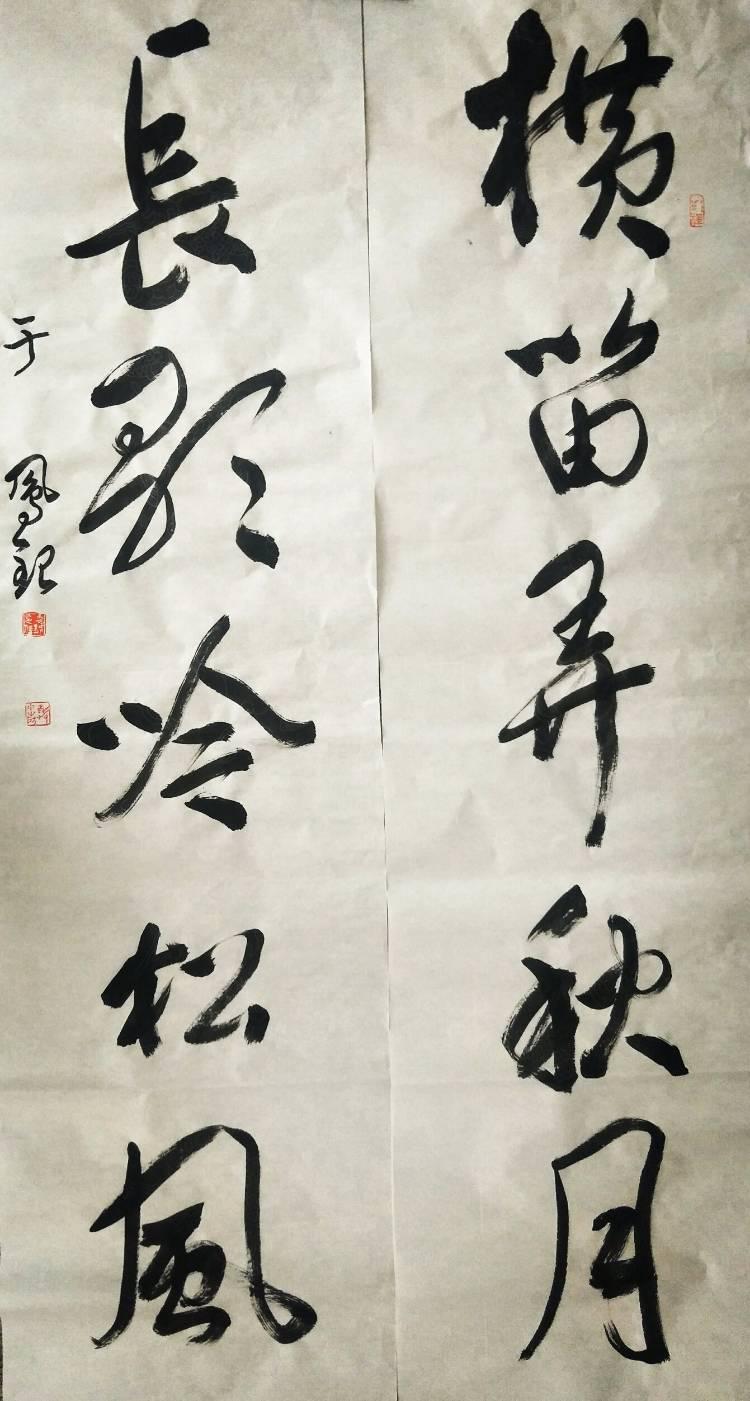 橫笛弄秋月
長歌吟松風
于鳳